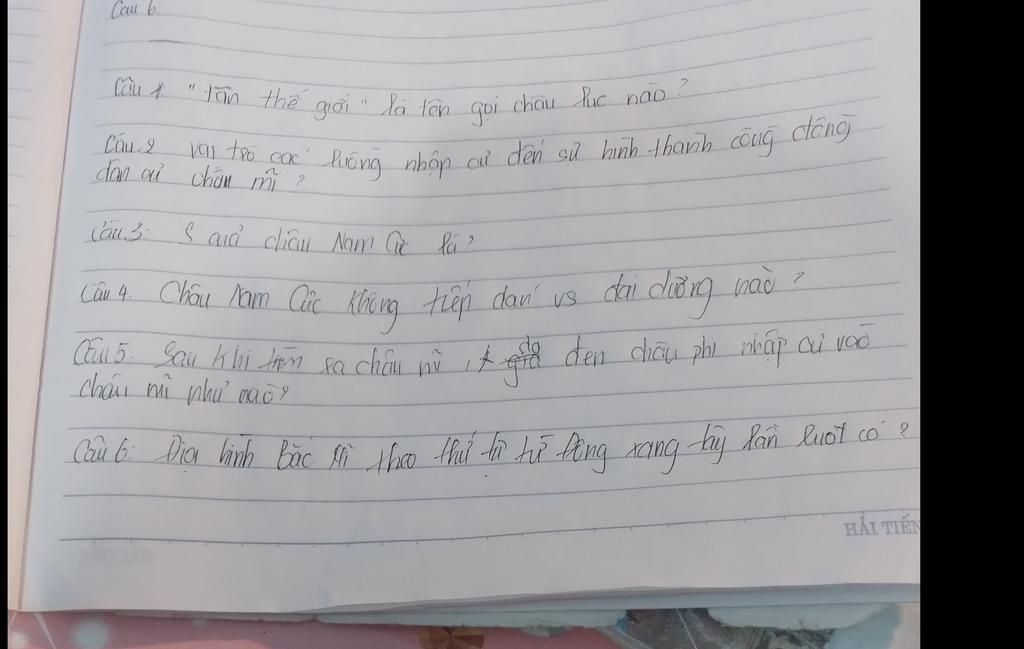 Câu 6
Câu 1 "tân thế giới" là tên gọi châu lục nào?
Câu.2 vai trò các luồng nhập cư đến sự hình thành cộng đồng
dân cư châu mĩ?
Câu.3: châu Nam Cực là?
Câu 4. Châu Nam Cực không tiếp vs đại dương nào?
Câu 5. Sau khi tìm ra châu mĩ, da đen châu phi nhập cư vào
châu mĩ như nào?
Câu 6: Địa hình Bắc Mĩ theo thứ tự từ Đông sang tây lần luot có?
HẢI TIẾN